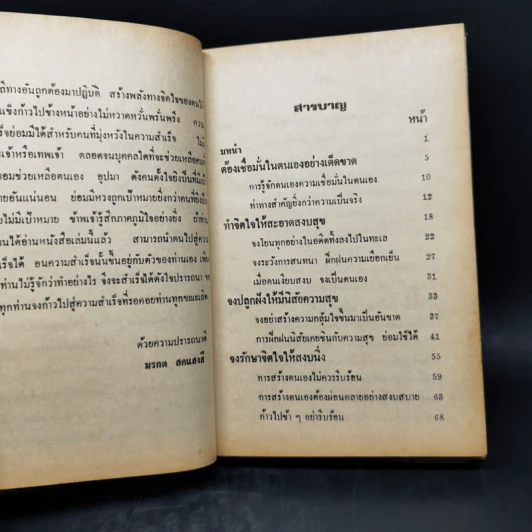 ถีทางอันถูกต้องมาปฏิบัติ สร้างพลังทางจิตใจของตนให้
แข็งก้าวไปข้างหน้าอย่างไม่หวาดหวั่นพรั่นพรึง ความ
ร็จย่อมมีได้สำหรับคนที่มุ่งหวังในความสำเร็จ ไม่
ะเจ้าหรือเทพเจ้า ตลอดจนบุคคลใดที่จะช่วยเหลือตนเ
ยอมช่วยเหลือตนเอง อุปมา ดังคนตั้งใจยิงปืนที่มีเ
ายอันแน่นอน ย่อมมีหวังถูกเป้าหมายยิ่งกว่าคนที่ยิงปื
ยไม่มีเป้าหมาย ข้าพเจ้ารู้สึกภาคภูมิใจอย่างยิ่ง ถ้าท่า
านได้อ่านหนังสือเล่มนี้แล้ว สามารถนำตนไปสู่ความ
ร็จได้ อนความสำเร็จนั้นขึ้นอยู่กับตัวของท่านเอง เพีย
ท่านไม่รู้จักว่าทำอย่างไร จึงจะสำเร็จได้ดังใจปรารถนา ข
ทุกท่านจงก้าวไปสู่ความสำเร็จที่รอคอยท่านทุกขณะเถิด
ด้วยความปรารถนาดี
มรกต สดแสงสี
สารบาญ
หน้า
บทนำ 1
ต้องเชื่อมั่นในตนเองอย่างเด็ดขาด 5
การรู้จักตนเองความเชื่อมั่นในตนเอง 10
ท่าทางสำคัญยิ่งกว่าความเป็นจริง 12
ทำจิตใจให้สะอาดสงบสุข 18
จงโยนทุกอย่างในอดีตทิ้งลงไปในทะเล 22
จงระวังการสนทนา ฝึกฝนความเยือกเย็น 27
เมื่อตนเงียบสงบ จงเป็นตนเอง 31
จงปลูกฝังให้มีนิสัยความสุข 33
จงอย่าสร้างความกลุ้มใจขึ้นมาเป็นอันขาด 37
การฝึกฝนนิสัยเคยชินกับความสุข ย่อมใช้ได้ 41
จงรักษาจิตใจให้สงบนิ่ง 55
การสร้างตนเองไม่ควรรีบร้อน 59
การสร้างตนเองต้องผ่อนคลายอย่างสงบสบาย 63
ก้าวไปช้า ๆ อย่ารีบร้อน 68